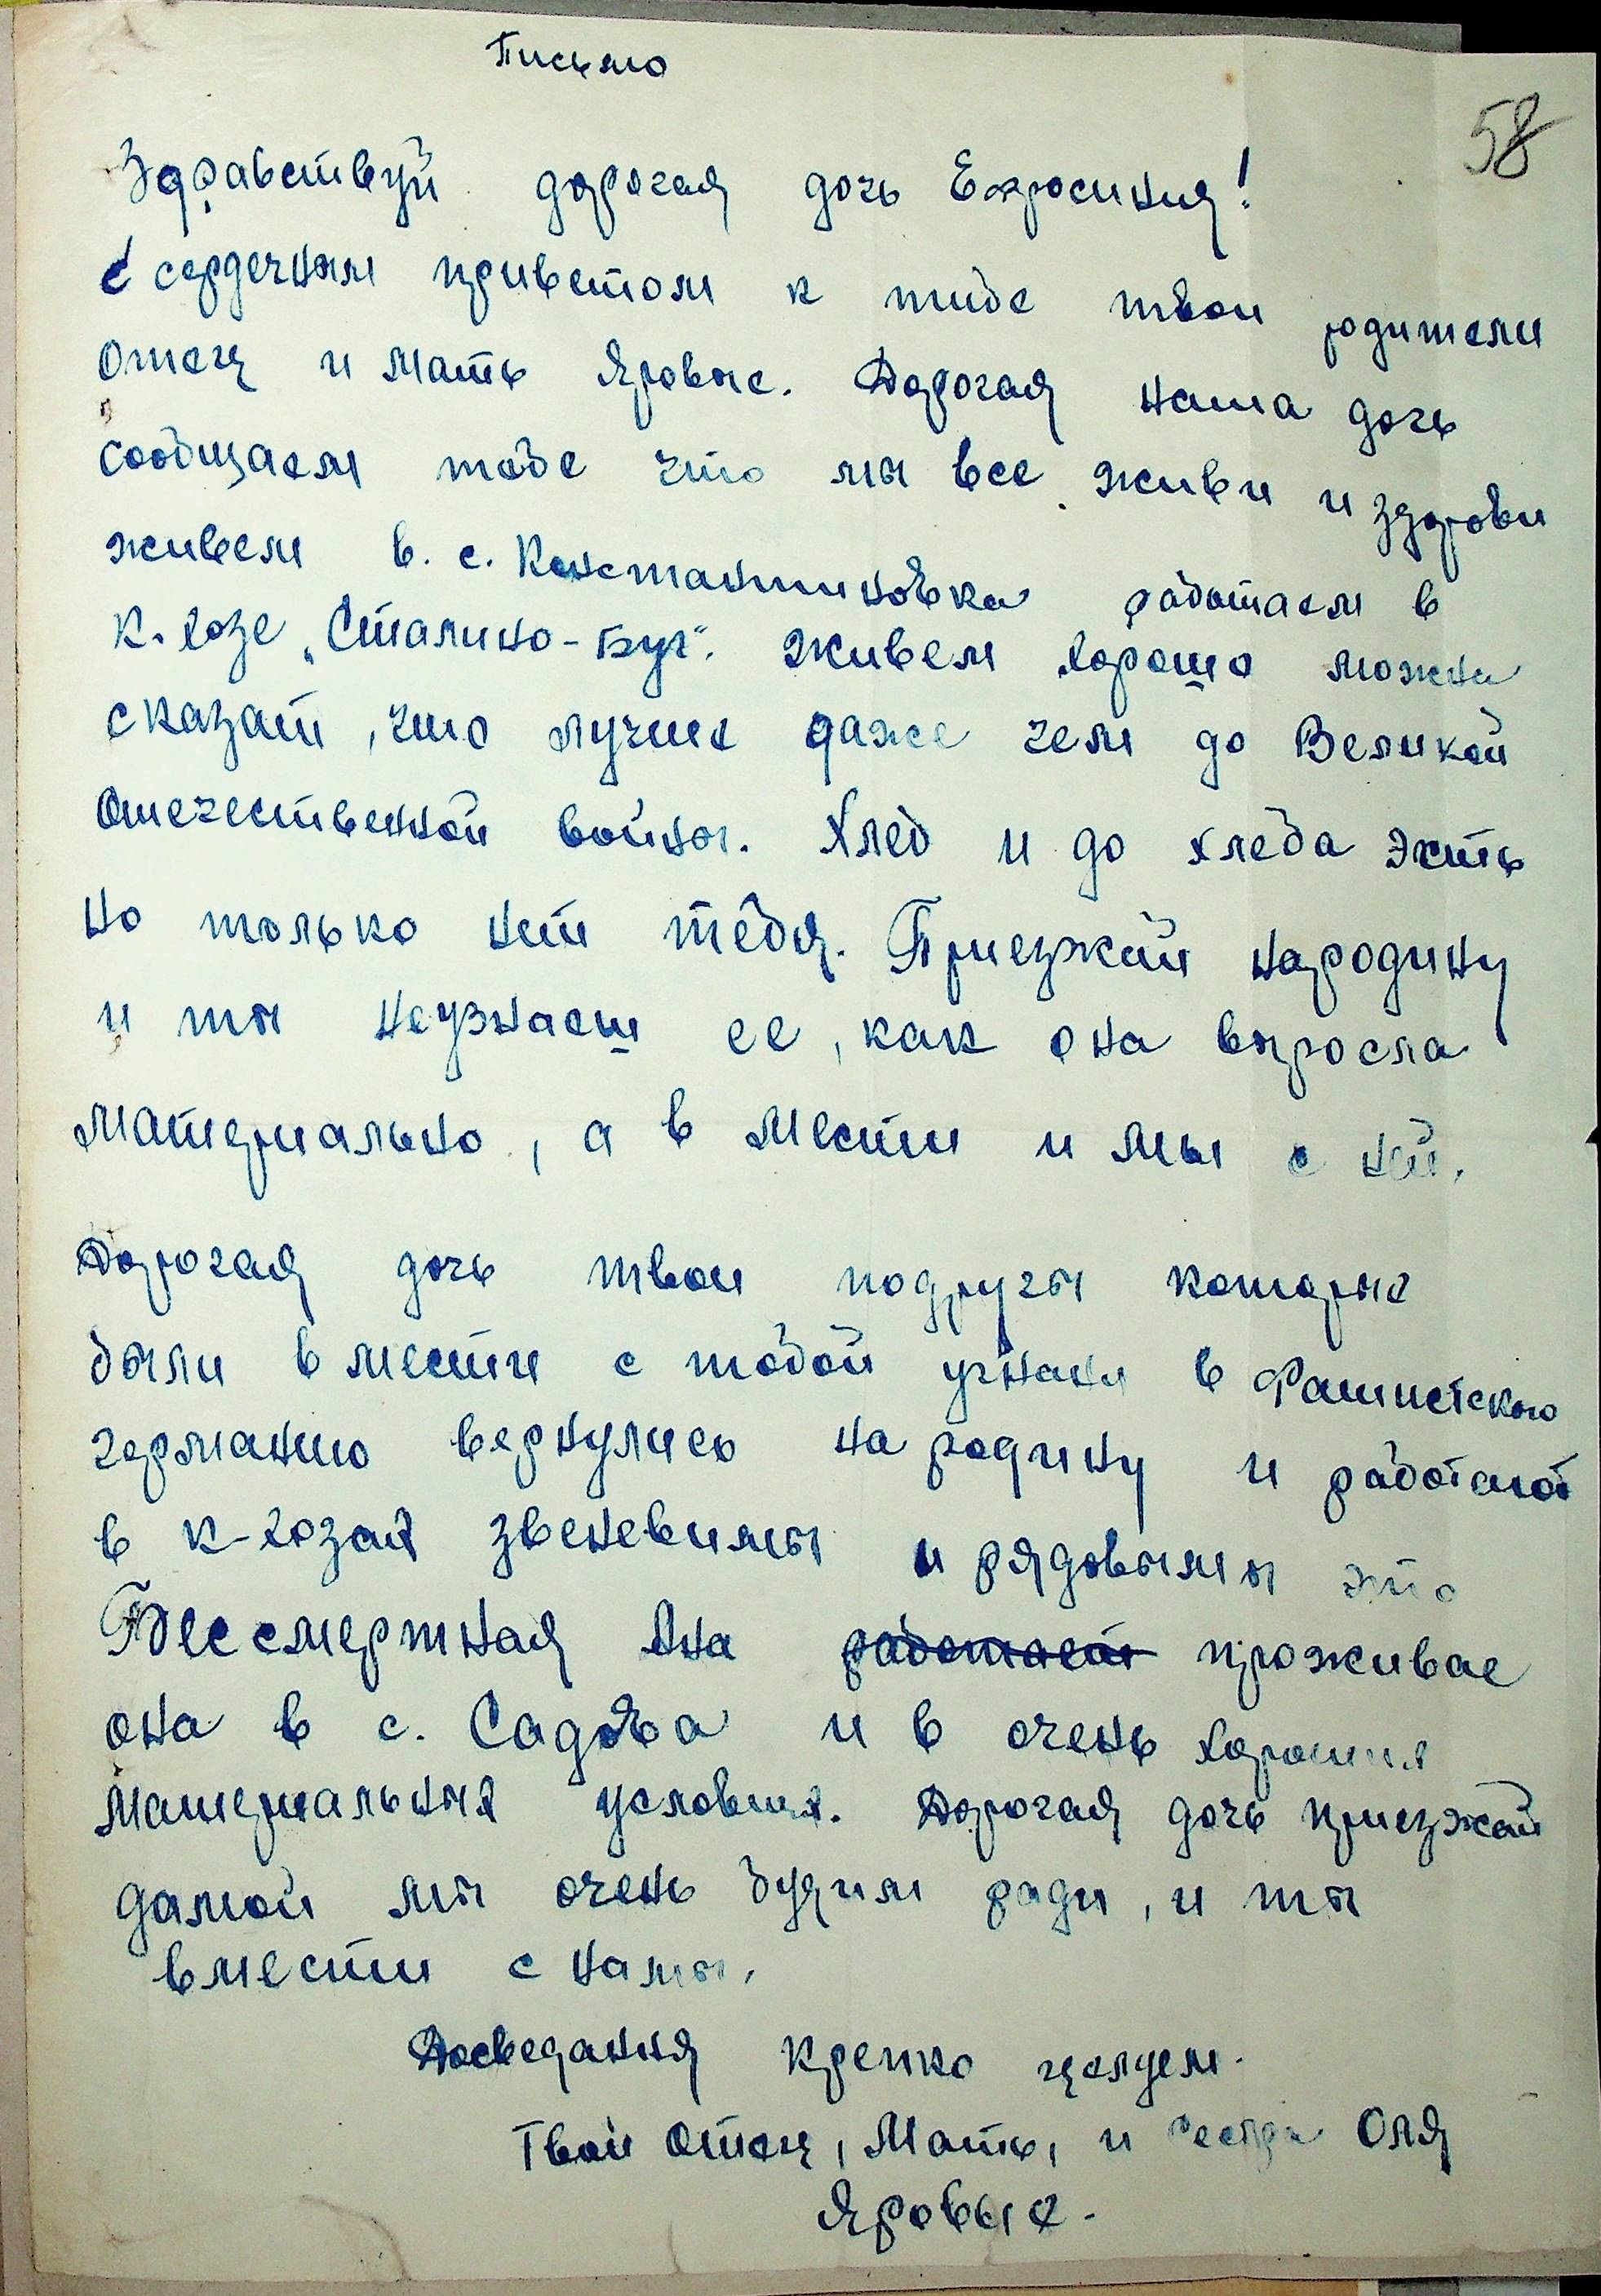 Письмо
58
Здравствуй дорогая дочь Ефросиния!
С сердечным приветом к тибе твои родители
Отец и Мать Яровые. Дорогая наша дочь
сообщаем тебе что мы все живи и здорови
живем в. с. Константиновка работаем в
к-хозе „Сталино-Буг“. Живем хорошо можна
сказат, что лучше даже чем до Великой
Отечественной войны. Хлеб и до хлеба эсть
но только нет тебя. Приезжай народину
и ты неузнаеш ее, как она выросла
Материально, а в Мести и мы с ней.
Дорогая дочь твои подругы которые
были в мести с тобой угнаны в Фашистскою
германию вернулись на родину и работают
в к-хозах звеневимы и рядовымы это
Бессмертная Яна работает проживае
она в с. Садова и в очень хороших
Материальных условиях. Дорогая дочь приезжай
дамой мы очень будим ради, и ты
вмести с намы.
Досведання Крепко целуем.
Твои Отец, Мать, и Сестра Оля
Яровые.